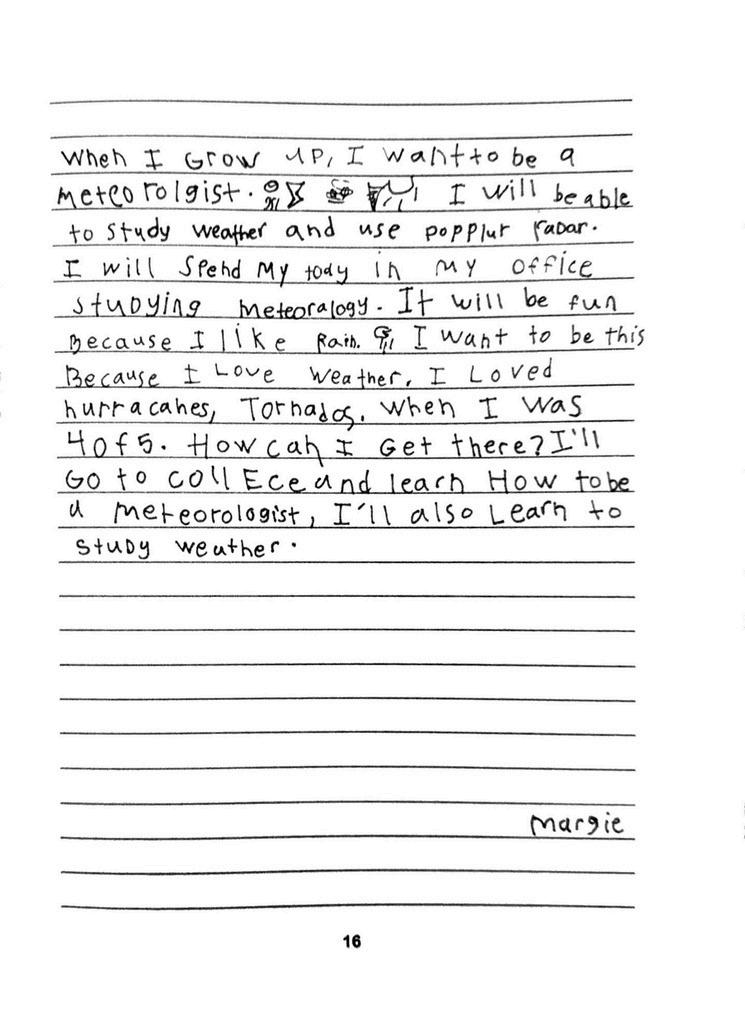 When I Grow UP, I want to be a
meteorolgist. I will be able
to study weather and use popplur radar.
I will Spend My tody in my office
studying meteoralogy. It will be fun
Because I like Rain. I want to be this
Because I Love weather. I Loved
hurracanes, Tornados, when I was
4 of 5. How can I Get there? I'll
Go to collEce and learn How to be
a meteorologist, I'll also Learn to
study weather.
Margie
16